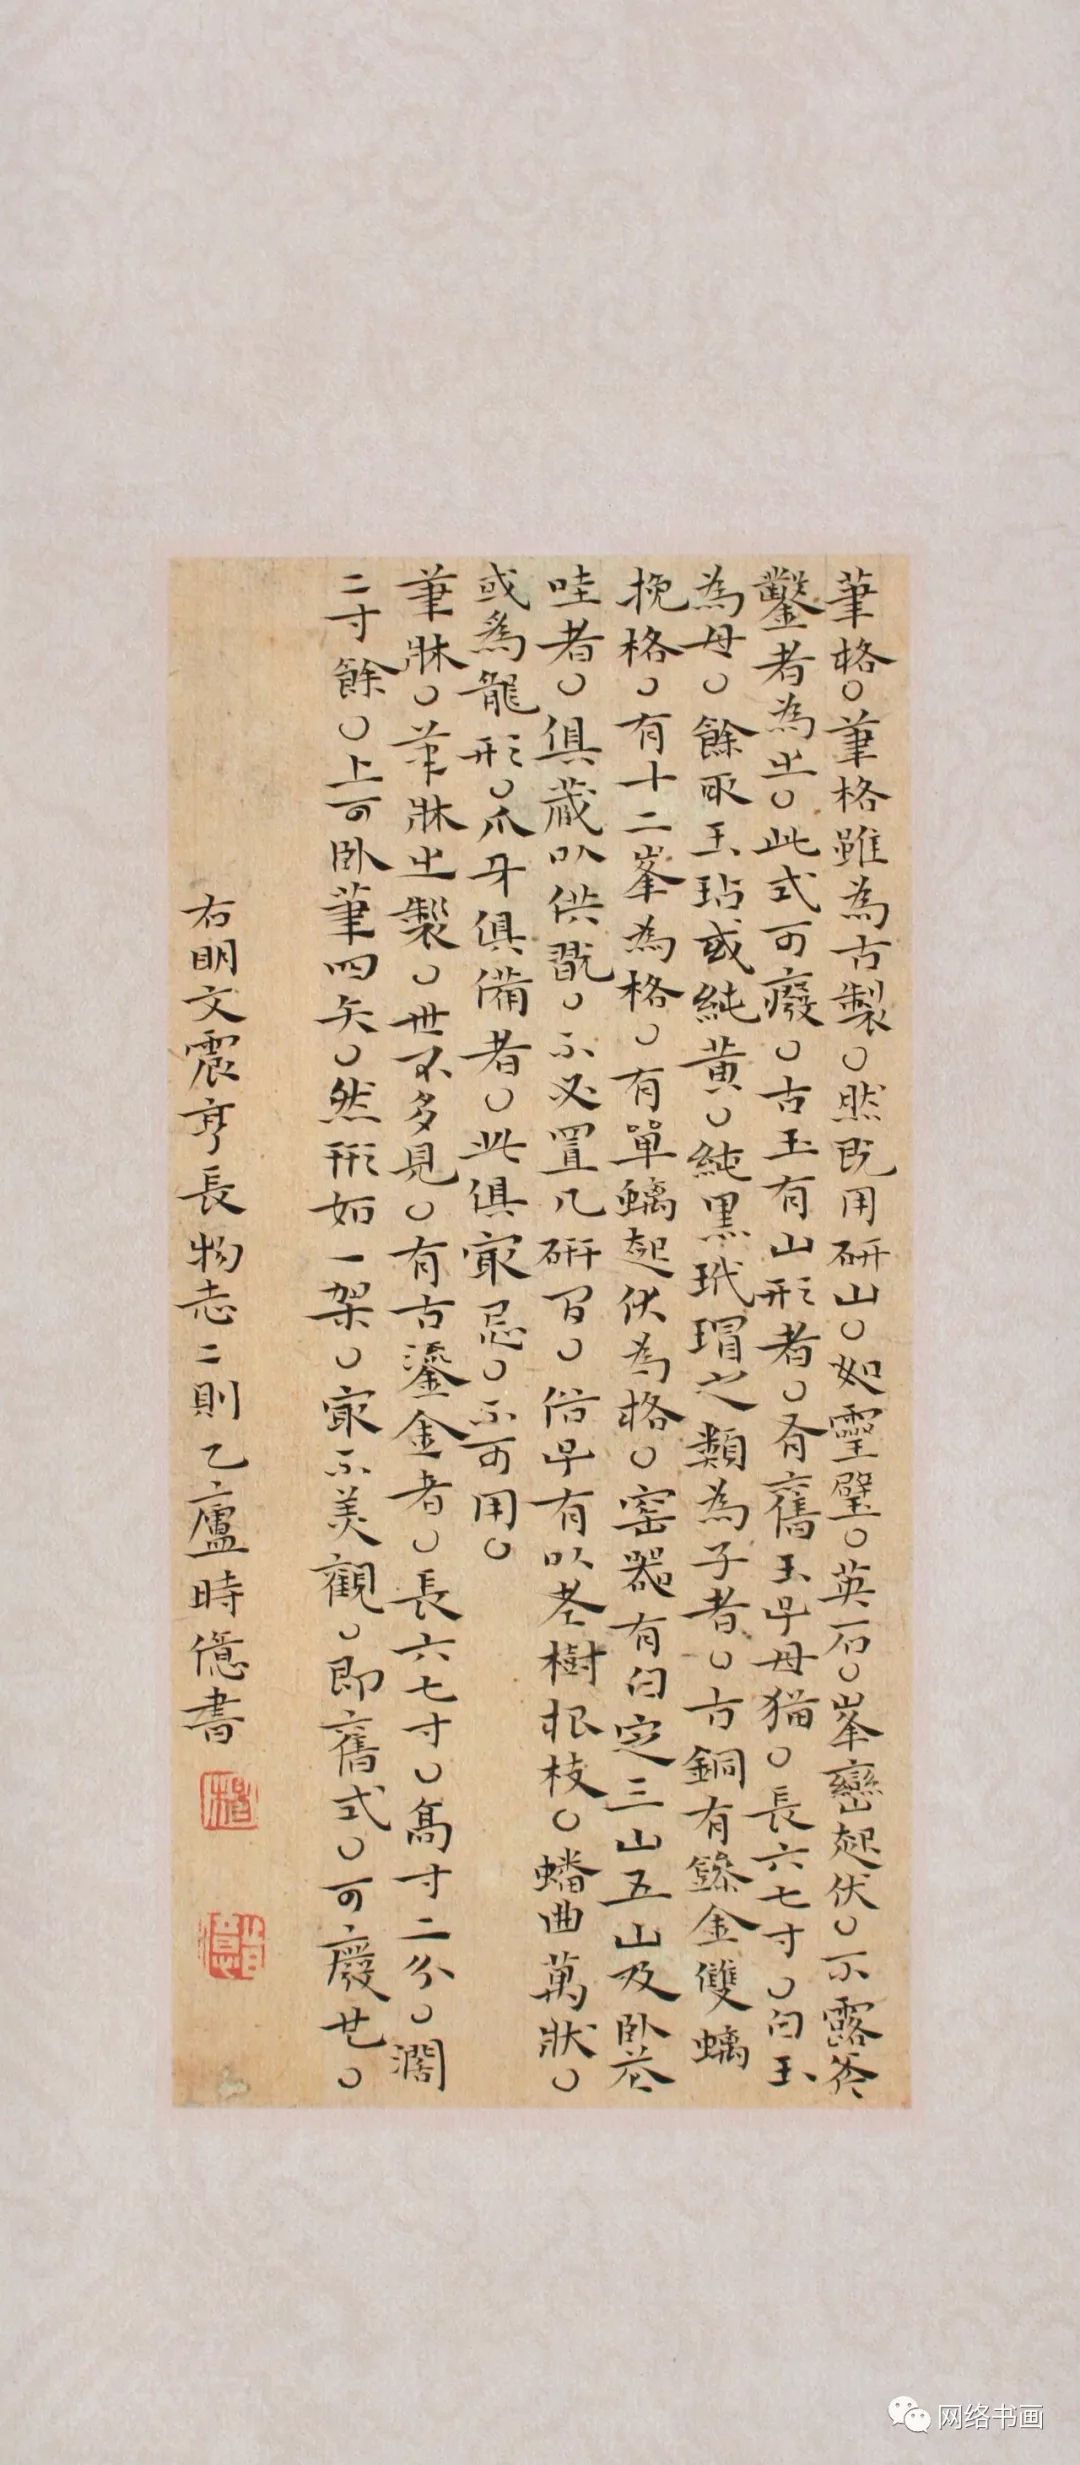 筆格。筆格雖為古製。然既用研山。如靈璧。英石。峯巒起伏。不露斧
鑿者為㞢。此式可廢。古玉有山形者。有舊玉子母猫。長六七寸。白玉
為母。餘取玉玷或純黃。純黑玳瑁之類為子者。古銅有鏒金雙螭
挽格。有十二峯為格。有單螭起伏為格。窑器有白定三山五山及臥花
哇者。俱藏以供翫。不必置几研間。俗子有以老樹根枝。蟠曲萬狀。
或為龍形。爪牙俱備者。此俱冣忌。不可用。
筆牀。筆牀㞢製。世不多見。有古鎏金者。長六七寸。高寸二分。濶
二寸餘。上可臥筆四矢。然形如一架。冣不美觀。即舊式。可廢也。
右明文震亨長物志二則乙廬時億書
時億
网络书画